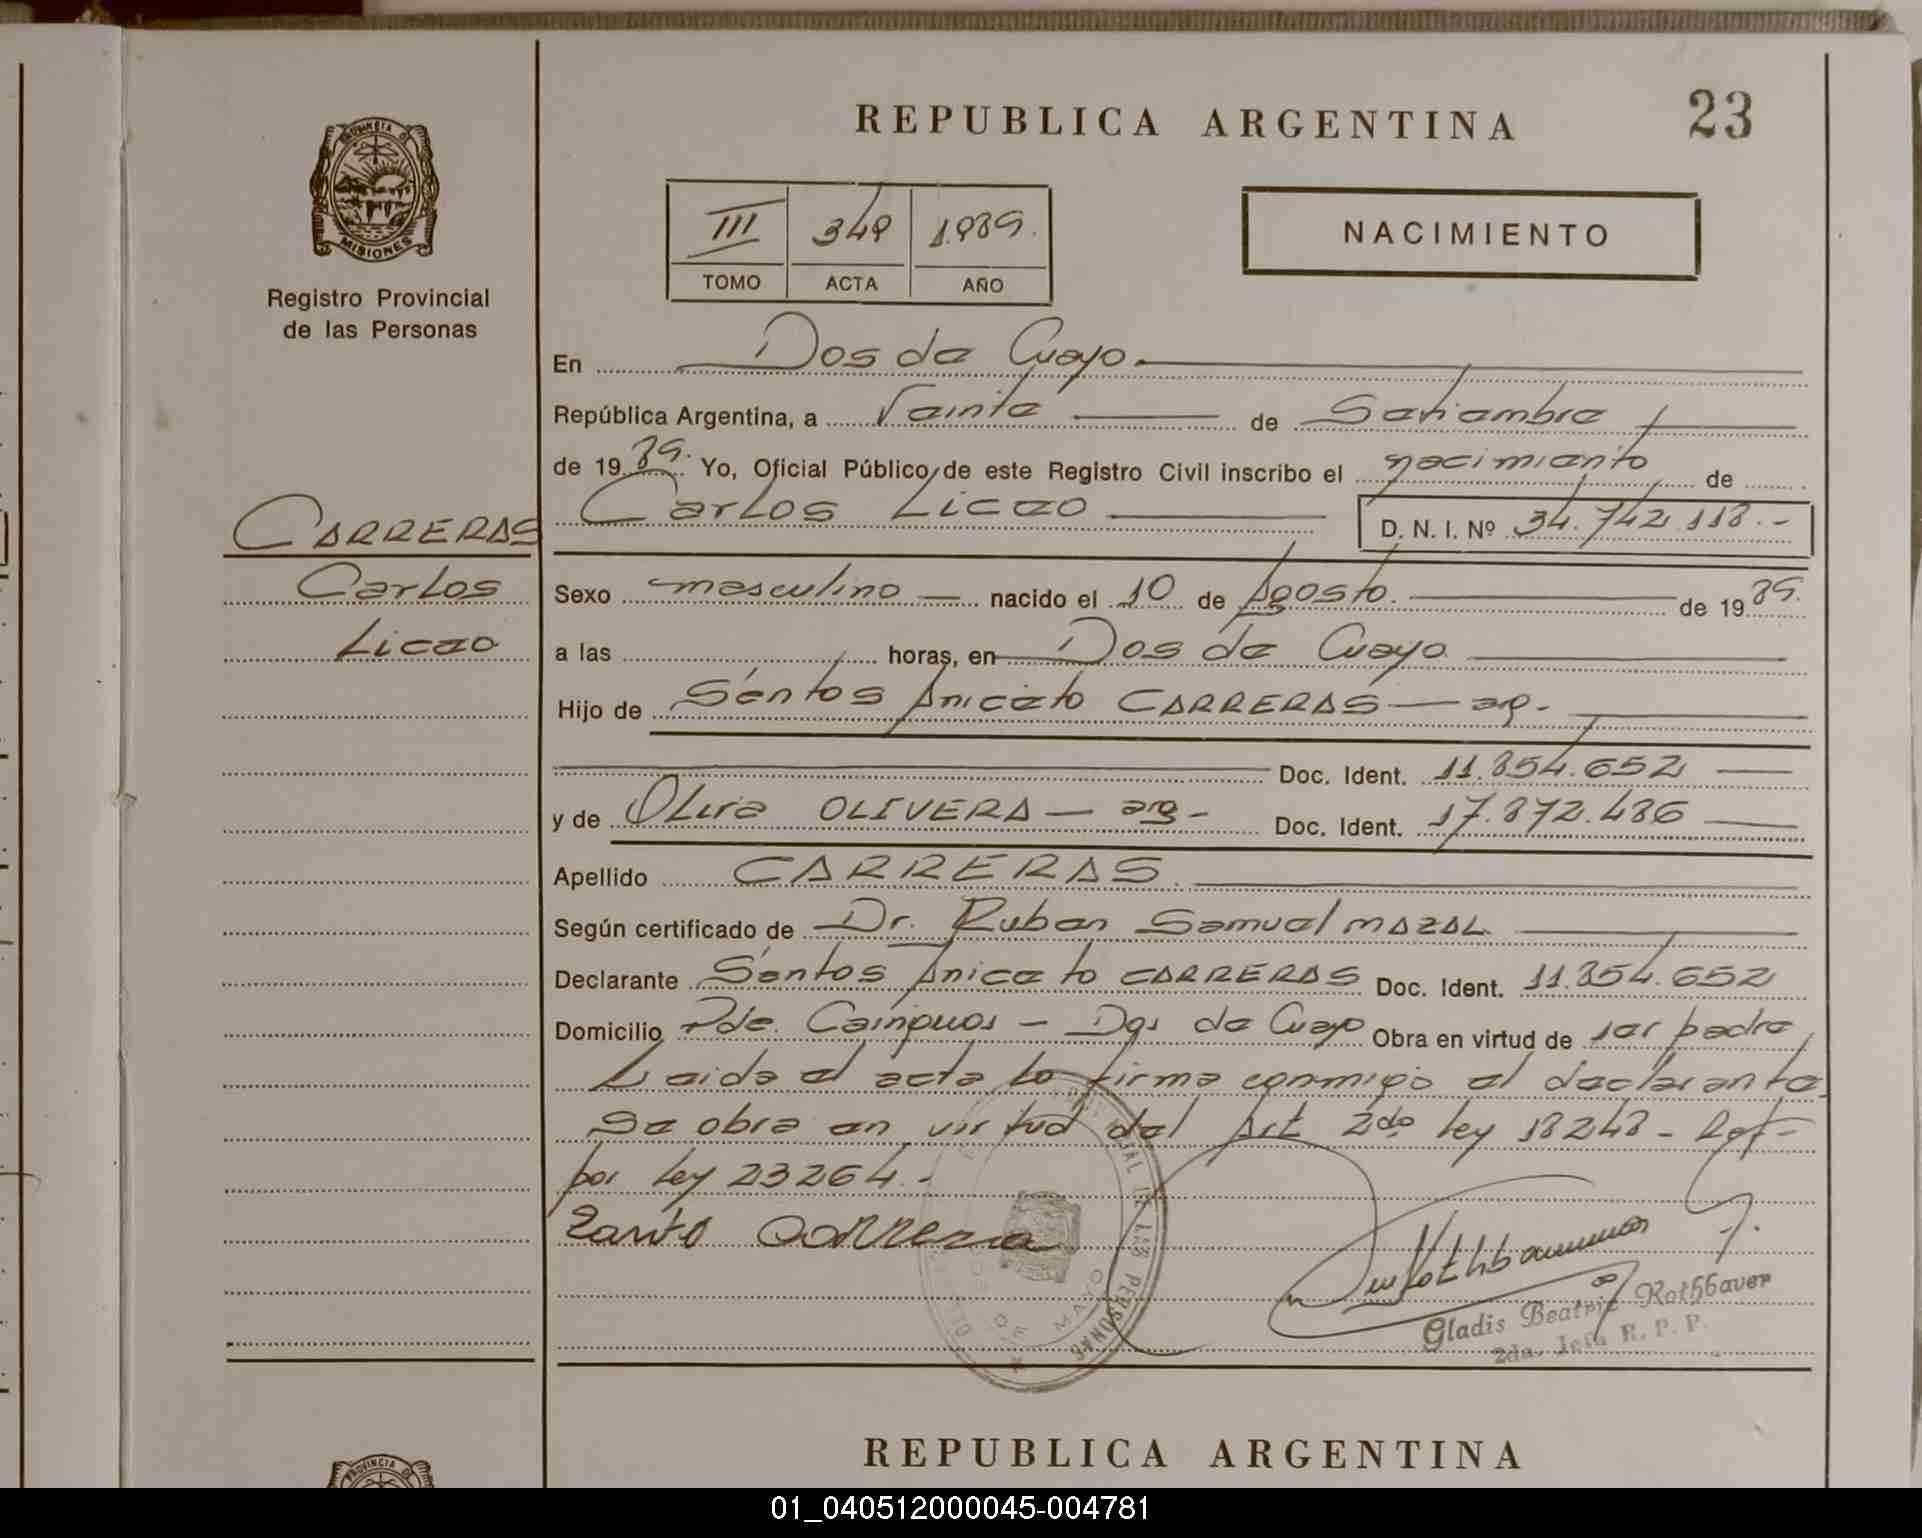 REPUBLICA ARGENTINA
23
PROVINCIA DE
MISIONES
Registro Provincial
de las Personas
III 348 1.989.
TOMO ACTA AÑO
NACIMIENTO
CARRERAS
Carlos
Liceo
En Dos de Mayo.
República Argentina, a Veinte de Setiembre
de 19 89. Yo, Oficial Público de este Registro Civil inscribo el nacimiento de
Carlos Liceo D. N. I. Nº 34.742.118.-
Sexo masculino nacido el 10 de Agosto. de 19 89.
a las horas, en Dos de Mayo
Hijo de Santos Aniceto CARRERAS — arg-
Doc. Ident. 11.854.652
y de OLivia OLIVERA — arg- Doc. Ident. 17.872.486
Apellido CARRERAS
Según certificado de Dr. Ruben Samuel MAZAL
Declarante Santos Aniceto CARRERAS Doc. Ident. 11.854.652
Domicilio Pde. - Dos de Mayo Obra en virtud de ser padre
Leida el acta lo firma conmigo el declarante
Se obra en virtud del Art 2do ley 18248 -
por ley 23264.-
Gladis Beatriz Rothbaver
2da. Jefa R. P. P.
REPUBLICA ARGENTINA
PROVINCIA DE
01_040512000045-004781